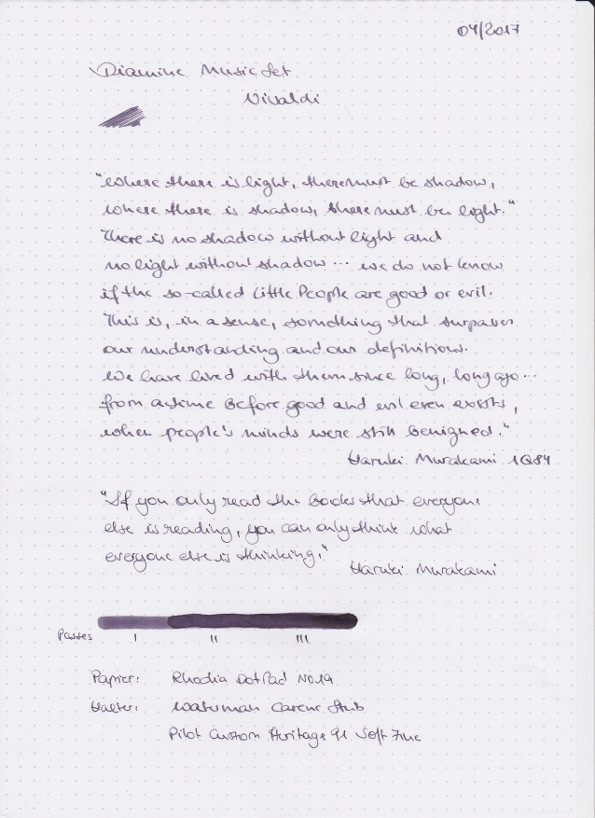 04/2017
Diamine Music Set
Vivaldi
"Where there is light, there must be shadow,
where there is shadow, there must be light."
There is no shadow without light and
no light without shadow ... we do not know
if the so-called Little People are good or evil.
This is, in a sense, something that surpasses
our understanding and our definitions.
We have lived with them since long, long ago ...
from a time before good and evil even exists,
when people's minds were still benighted."
Haruki Murakami 1Q84
"If you only read the books that everyone
else is reading, you can only think what
everyone else is thinking."
Haruki Murakami
Passes I II III
Papier: Rhodia DotPad No 19
Halter: Waterman Carene Stub
Pilot Custom Heritage 91 Soft Fine